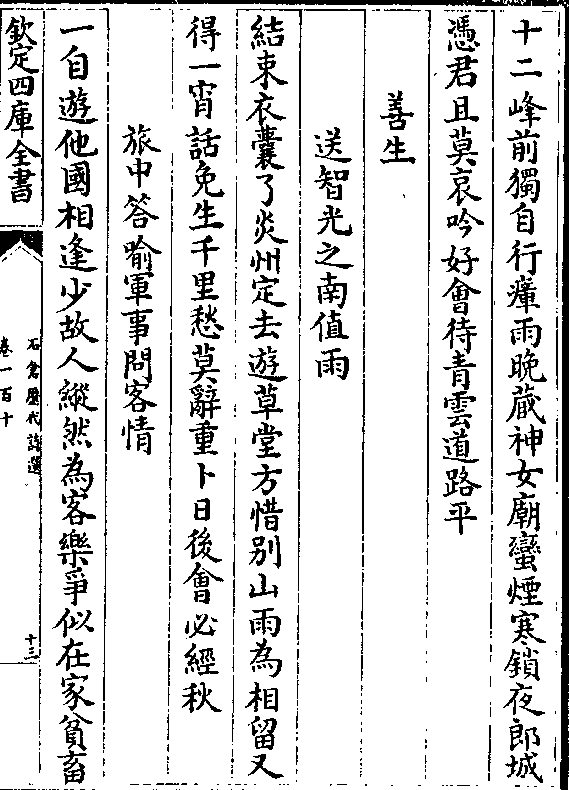 十二峰前獨自行瘴雨晚藏神女廟蠻煙寒鎖夜郎城
憑君且莫哀吟好會待青雲道路平
善生
送智光之南值雨
結束衣囊了炎州定去遊草堂方惜别山雨為相留又
得一宵話免生千里愁莫辭重卜日後會必經秋
旅中答喻軍事問客情
一自遊他國相逢少故人縱然為客樂爭似在家貧畜
欽定四庫全書
石倉歷代詩選
卷一百十
十三